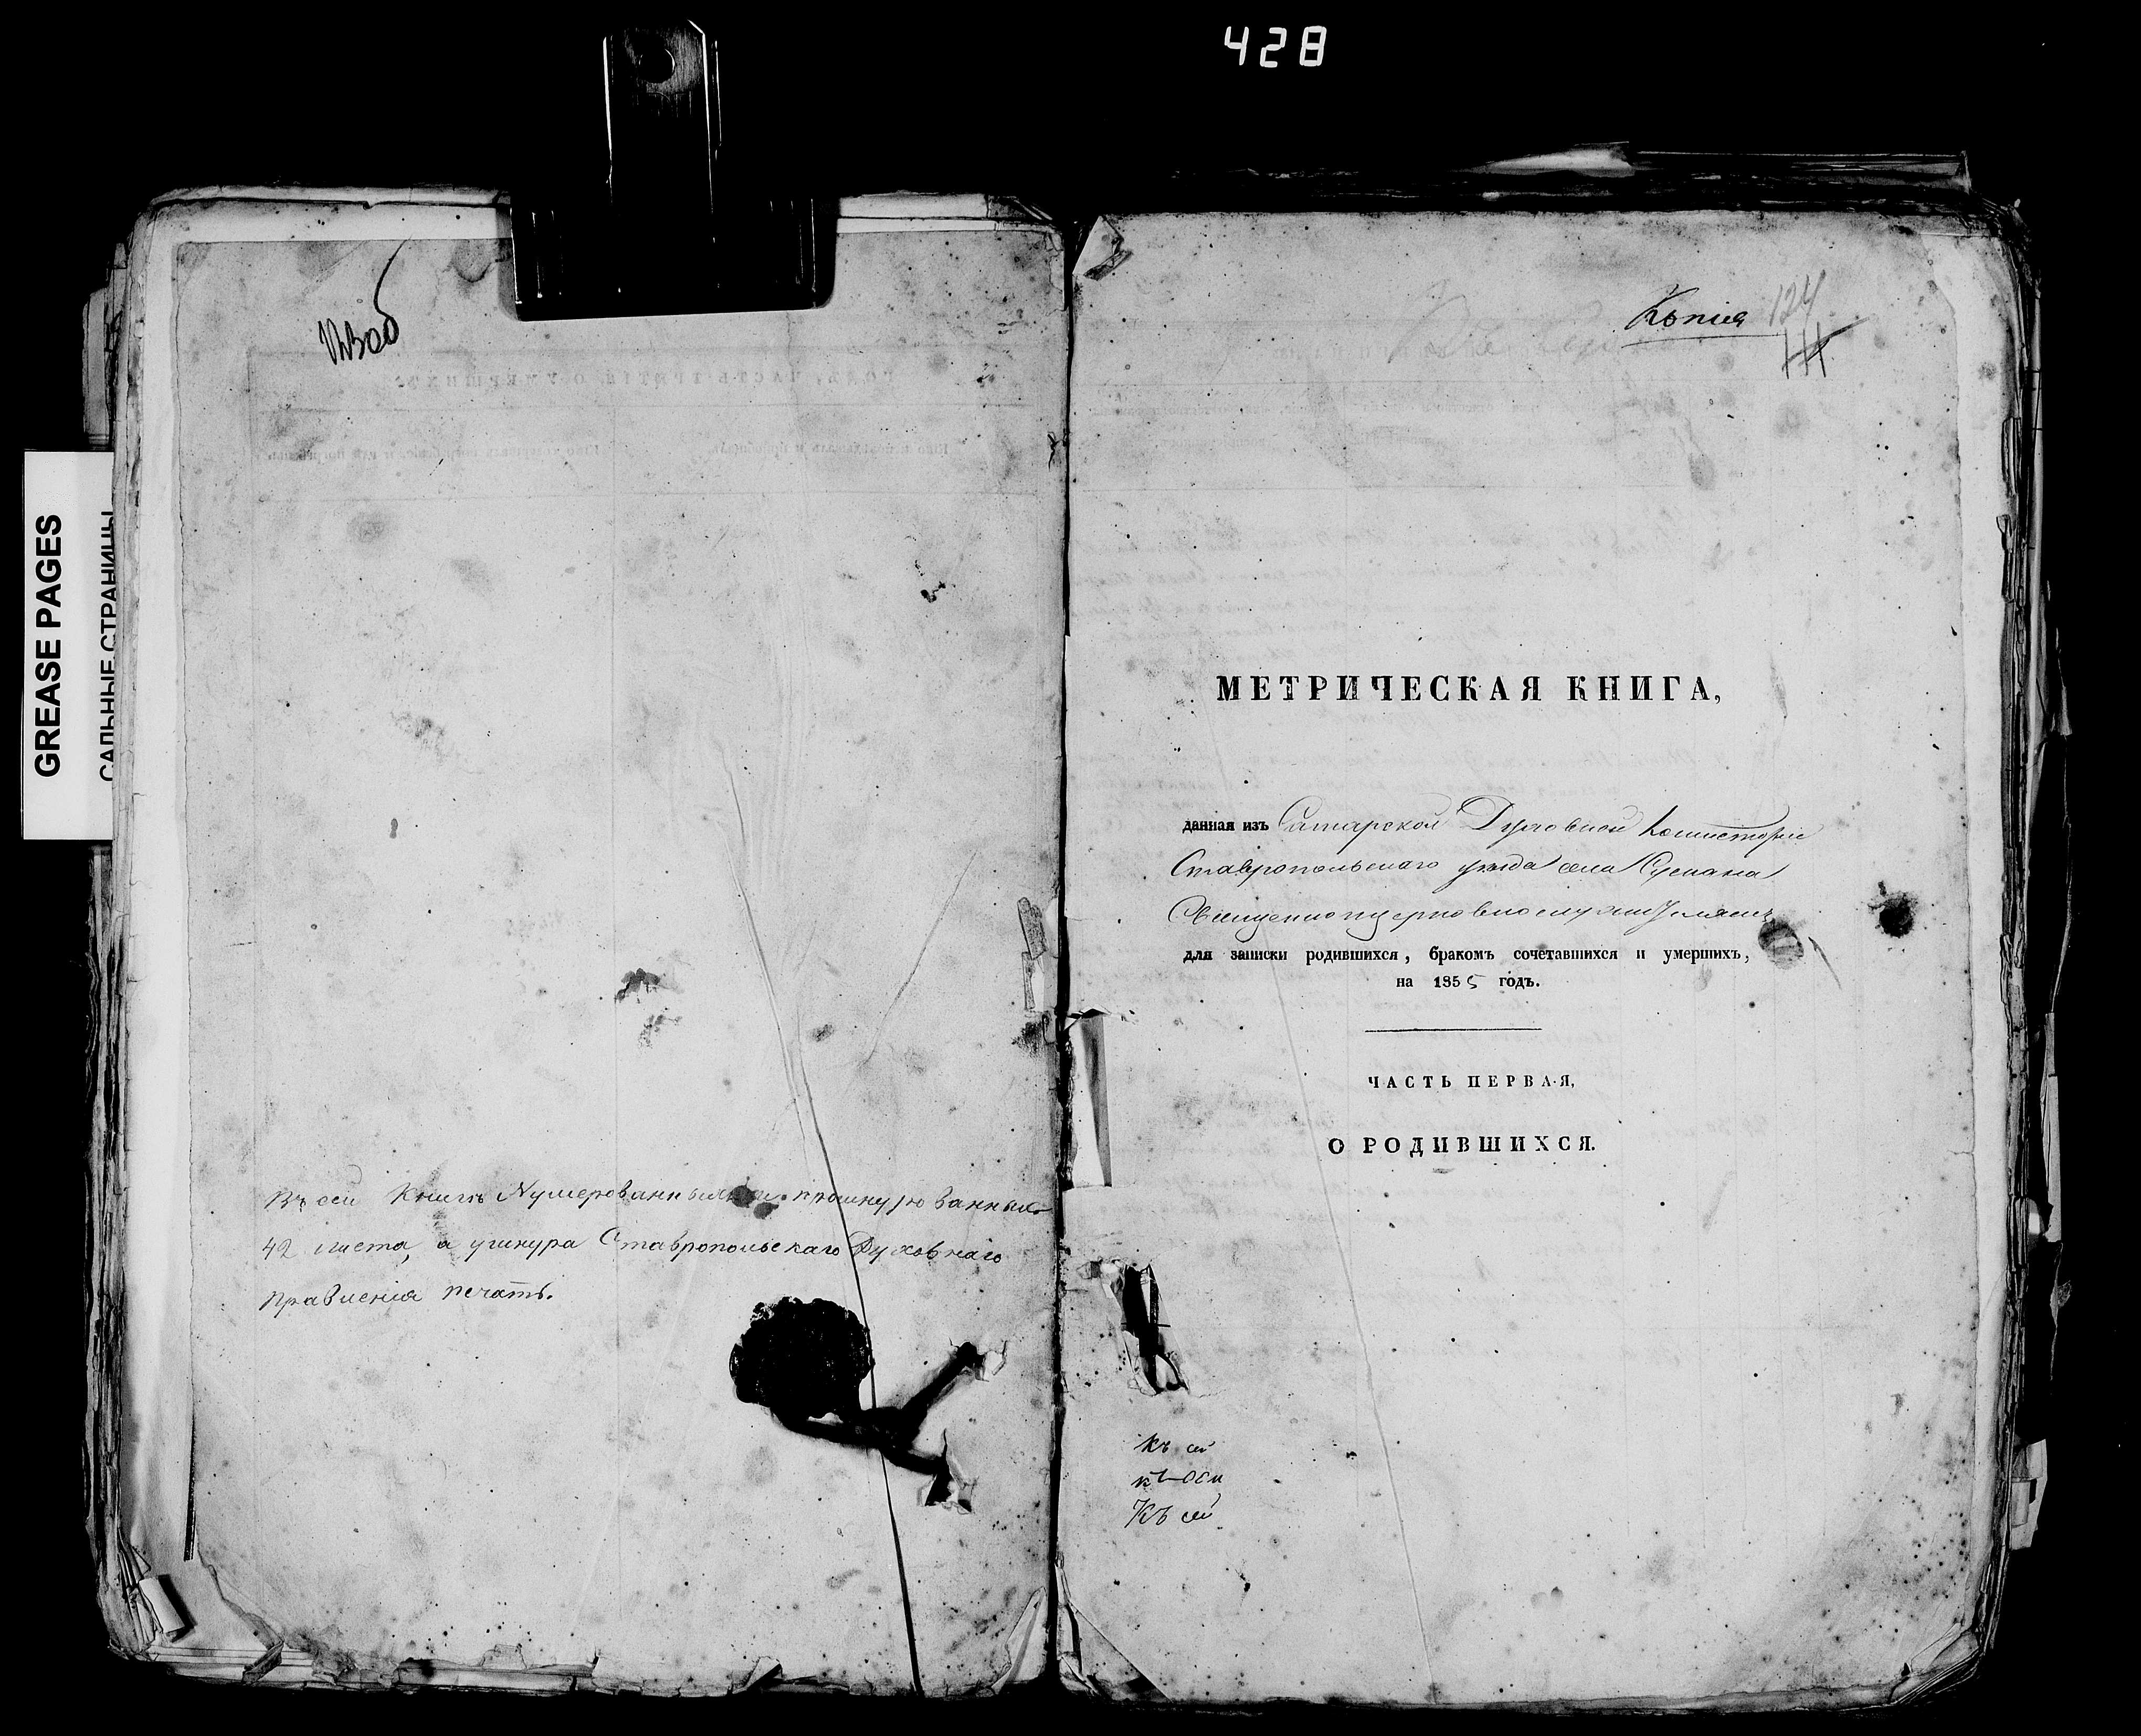 428
GREASE PAGES
САЛЬНЫЕ СТРАНИЦЫ
Въ сей Книгѣ Нумерованныхъ и прошнурованныхъ
42 листа, а у шнура Ставропольскаго Духовнаго
Правленія печать.
Копія 124
МЕТРИЧЕСКАЯ КНИГА,
данная изъ Самарской Духовной Консисторіи
Ставропольскаго уѣзда села Сускана
Священноцерковнослужителямъ
для записки родившихся, бракомъ сочетавшихся и умершихъ,
на 1855 годъ.
ЧАСТЬ ПЕРВАЯ,
О РОДИВШИХСЯ.
Къ сей
къ сей
Къ сей